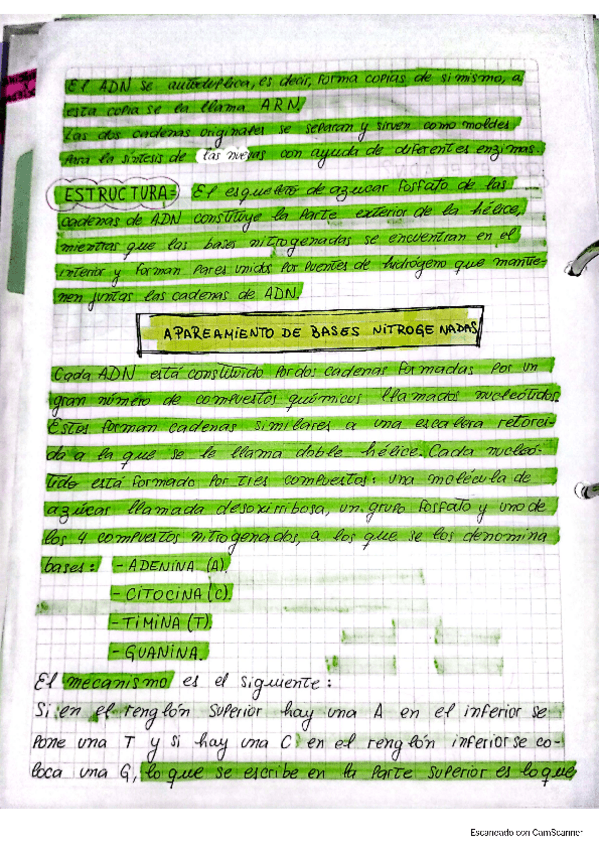 El ADN se autoduplica, es decir, forma copias de si mismo, a
esta copia se la llama ARN
Las dos cadenas originales se separan y sirven como moldes
Para la síntesis de las nuevas con ayuda de diferentes enzimas.
ESTRUCTURA: El esqueleto de azucar fosfato de las
cadenas de ADN constituye la parte exterior de la hélice,
mientras que las bases nitrogenadas se encuentran en el
interior y forman pares unidos por puentes de hidrógeno que mantie-
nen juntas las cadenas de ADN.
APAREAMIENTO DE BASES NITROGENADAS
Cada ADN está constituido por dos cadenas formadas por un
gran número de compuestos químicos llamados nucleótidos.
Estos forman cadenas similares a una escalera retorci-
da a la que se le llama doble hélice. Cada nucleó-
tido está formado por tres compuestos: una molécula de
azúcar llamada desoxirribosa, un grupo fosfato y uno de
los 4 compuestos nitrogenados, a los que se los denomina
bases: - ADENINA (A)
- CITOCINA (C)
- TIMINA (T)
- GUANINA.
El mecanismo es el siguiente:
Si en el renglón superior hay una A en el inferior se
Pone una T y si hay una C en el renglón inferior se co-
loca una G, lo que se escribe en la parte superior es lo que
Escaneado con CamScanner